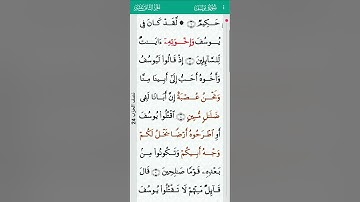 حَكِيمٌ ۝ ۞ لَّقَدْ كَانَ فِى
يُوسُفَ وَإِخْوَتِهِۦٓ ءَايَٰتٌ
لِّلسَّآئِلِينَ ۝ إِذْ قَالُوا۟ لَيُوسُفُ
وَأَخُوهُ أَحَبُّ إِلَىٰٓ أَبِينَا مِنَّا
وَنَحْنُ عُصْبَةٌ إِنَّ أَبَانَا لَفِى
ضَلَٰلٍ مُّبِينٍ ۝ ٱقْتُلُوا۟ يُوسُفَ
أَوِ ٱطْرَحُوهُ أَرْضًا يَخْلُ لَكُمْ
وَجْهُ أَبِيكُمْ وَتَكُونُوا۟ مِنۢ
بَعْدِهِۦ قَوْمًا صَٰلِحِينَ ۝ قَالَ
قَآئِلٌ مِّنْهُمْ لَا تَقْتُلُوا۟ يُوسُفَ